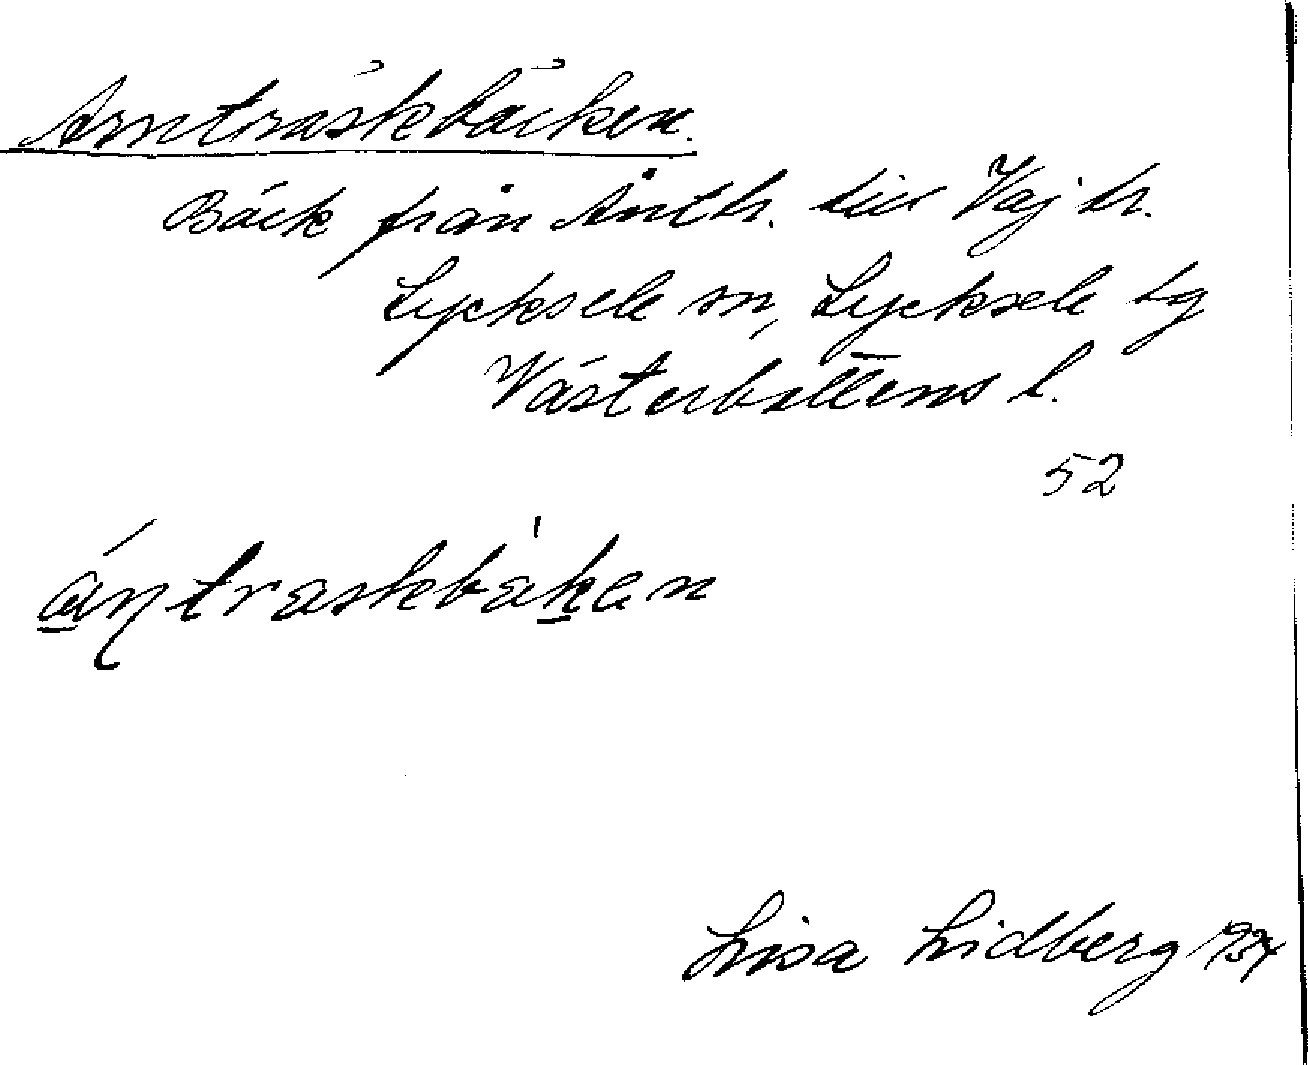 Arnträskbäcken.
Bäck från Åntr. till Vajtr.
Lycksele sn, Lycksele lg
Västerbottens l.
52
ántraskbäken
Lisa Lidberg 1934